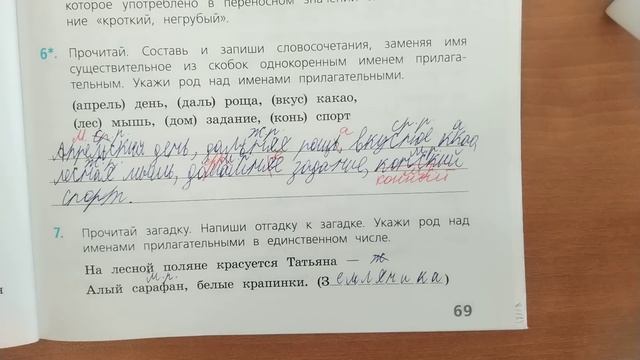 которое употреблено в переносном значении
ние «кроткий, негрубый».
6*. Прочитай. Составь и запиши словосочетания, заменяя имя
существительное из скобок однокоренным именем прилага-
тельным. Укажи род над именами прилагательными.
(апрель) день, (даль) роща, (вкус) какао,
(лес) мышь, (дом) задание, (конь) спорт
м.р. ж.р. ср.р.
Апрельский день, дальняя роща, вкусное какао,
лесная мышь, домашнее задание, конский
конный
спорт.
7. Прочитай загадку. Напиши отгадку к загадке. Укажи род над
именами прилагательными в единственном числе.
На лесной поляне красуется Татьяна —
м.р.
Алый сарафан, белые крапинки. (Земляника)
69